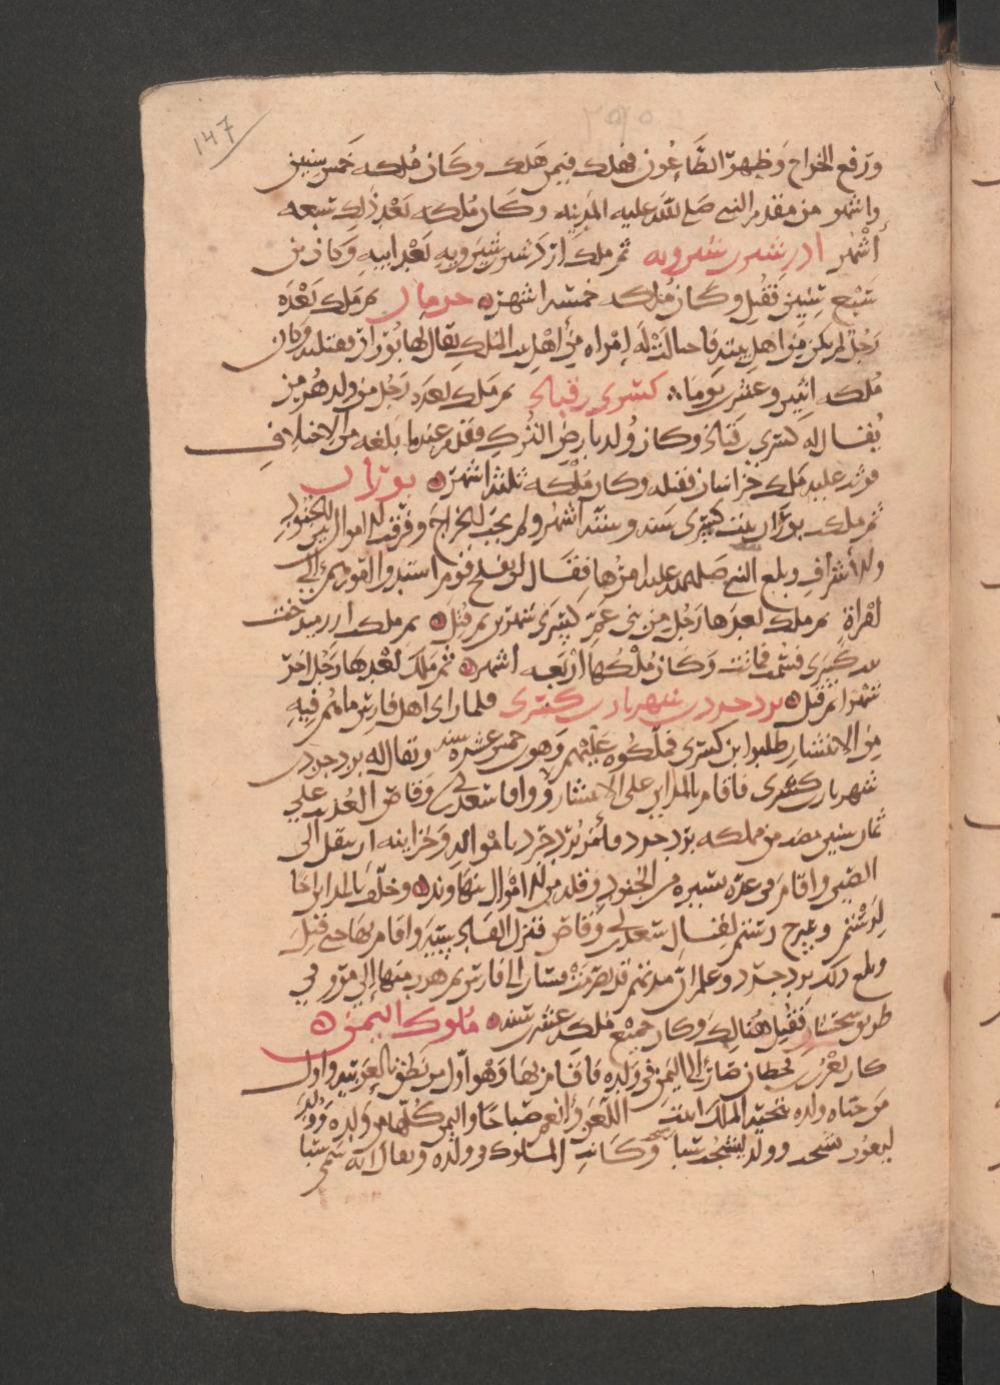 147
ورفع الخراج وظهر الطاعون فهلك فيمن هلك وكان ملكه خمس سنين
واشهر من مقدم النبي صلى الله عليه المدينه وكان ملكه بعد ذلك سبعه
أشهر ادرشير بن شيرويه ثم ملك ازدشير بن شيرويه بعد ابيه وكان بن
سبع سنين فقتل وكان ملكه خمسه اشهر حرمان ثم ملك بعده
رجل لم يكن من اهل بيته فاحتالت له إمراه من أهل بيت الملك يقال لها بوران فقتلته وكان
ملكه اثنين وعشرين يوما كسرى بن قباد ثم ملك بعده رجل من ولد هرمز
يقال له كسرى بن قباد وكان ولد بارض الترك فقدم عندما بلغه من الاختلاف
فوثب عليه ملك خراسان فقتله وكان ملكه ثلثه اشهر بوران
ثم ملك بوران بنت كسرى سنه وستة اشهر ولم تجب الخراج وفرقت الاموال بين الجنود
والأشراف وبلغ النبي صلى الله عليه امرها فقال لن يفلح قوم استندوا القول امرهم إلى
امراة ثم ملك بعدها رجل من بني عم كسرى شهرين ثم قتل ثم ملك ازرميدخت
بنت كسرى فسمت فماتت وكان ملكها اربعه اشهر ثم ملك بعدها رجل اخر
شهرا ثم قتل يزدجرد بن شهريار بن كسرى فلما راى اهل فارس ما هم فيه
من الانتشار طلبوا ابن كسرى فملكوه عليهم وهو بن خمس عشره سنه ويقال له يزدجرد بن
شهريار بن كسرى فاقام بالمداين على الانتشار ووافا سعد بن ابي وقاص العذيب علي
ثمان سنين مضت من مملكه يزدجرد فأمر يزدجرد باموالٍ وخزاينه ان ينقل الى
الصين واقام في عدة يسيره من الجنود وقلد من الاموال بنهاوند وخلف بالمداين اخا
لرستم وخرج رستم لقتال سعد بن ابي وقاص فنزل القادسيه واقام بها حتى قتل
وبلغ ذلك يزدجرد وعلم ان مدتهم قد تصرمت فسار الى فارس ثم هرب منها إلي مرو في
طريق سجستان فقتل هنالك وكان جميع ملكه عشرين سنه ملوك اليمن
كان يعرب بن قحطان صار الى اليمن في ولده فاقام بها وهو اول من نطق بالعربيه واول
من حياه ولده بتحية الملك ابيت اللعن وأنعم صباحا واليمن كلها من ولده وولد
ليعرب يشجب وولد ليشجب سبا وكانت الملوك في ولده ويقال انه سمي سبا